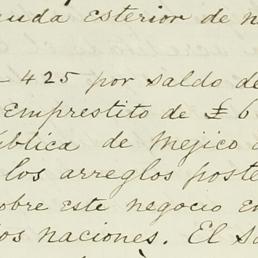 uda esterior de n
425 por saldo de
Emprestito de £ 6
ública de Mejico
los arreglos poste
obre este negocio en
os naciones. El S